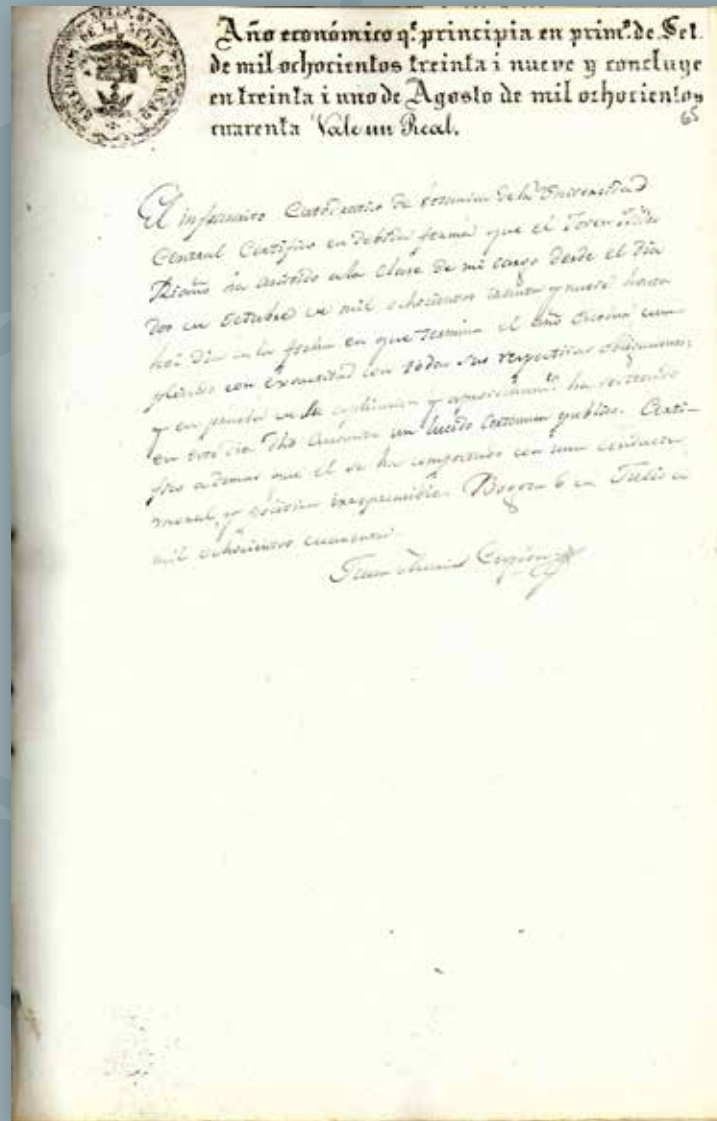 REPUBLICA DE LA NUEVA GRANADA
Año económico q.e principia en prim.o de Set.
de mil ochocientos treinta i nueve y concluye
en treinta i uno de Agosto de mil ochocientos
cuarenta Vale un Real.
65
El infrascrito Catedratico de de la Universidad
Central Certifico en debida forma que el Joven
Riaño ha asistido a la Clase de mi cargo desde el dia
dos de Octubre de mil ochocientos treinta y nueve hasta
hoi dia de la fecha en que termina el año escolar cum-
pliendo con exactitud con todas sus respectivas obligaciones;
y en prueba de su aplicacion y aprovecham.to ha sostenido
en este dia un lucido Certamen publico. Certi-
fico ademas que el se ha comportado con una conducta
moral, y politica irreprensible. Bogota 6 de Julio de
mil ochocientos cuarenta.